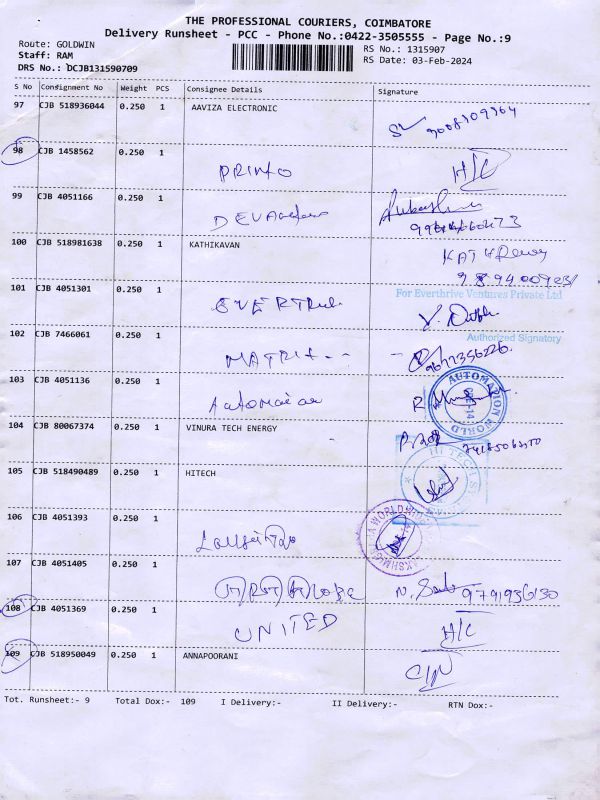 THE PROFESSIONAL COURIERS, COIMBATORE
Delivery Runsheet - PCC - Phone No.:0422-3505555 - Page No.:9
Route: GOLDWIN
RS No.: 1315907
Staff: RAM
RS Date: 03-Feb-2024
DRS No.: DCJB131590709
S No Consignment No Weight PCS Consignee Details Signature
97 CJB 518936044 0.250 1 AAVIZA ELECTRONIC
98 CJB 1458562 0.250 1
PRINTO H/C
99 CJB 4051166 0.250 1
100 CJB 518981638 0.250 1 KATHIKAVAN
101 CJB 4051301 0.250 1
For Everthrive Ventures Private Ltd
Authorized Signatory
102 CJB 7466061 0.250 1
MATRIX
9677356226.
103 CJB 4051136 0.250 1
AUTOMATION WORLD
104 CJB 80067374 0.250 1 VINURA TECH ENERGY
105 CJB 518490489 0.250 1 HITECH
HI TECH
106 CJB 4051393 0.250 1
107 CJB 4051405 0.250 1
108 CJB 4051369 0.250 1
UNITED H/C
109 CJB 518950049 0.250 1 ANNAPOORANI
Tot. Runsheet:- 9 Total Dox:- 109 I Delivery:- II Delivery:- RTN Dox:-